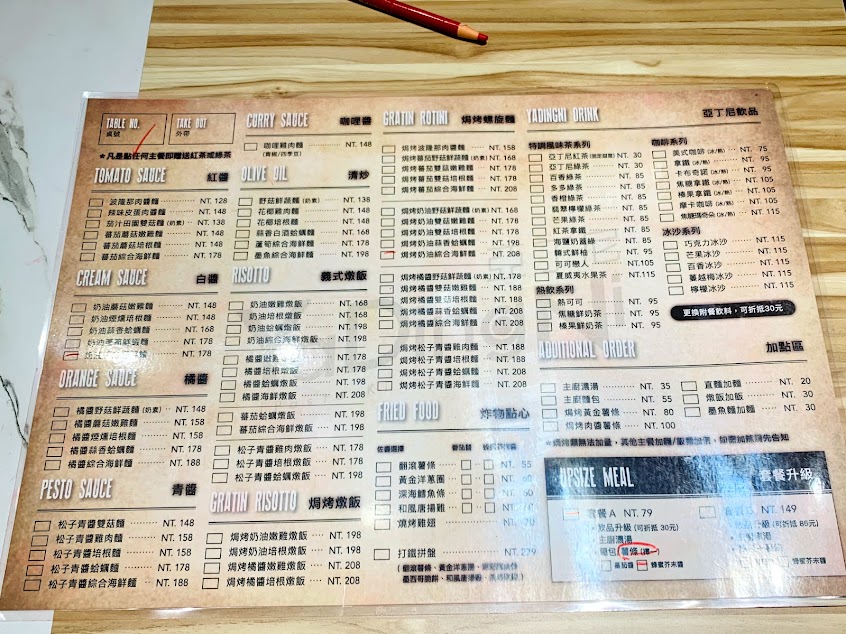 TABLE NO.
桌號
TAKE OUT
外帶
★凡是點任何主餐即贈送紅茶或綠茶
TOMATO SAUCE 紅醬
波隆那肉醬麵 NT. 128
辣味皮蛋肉醬麵 NT. 148
茄汁田園雙菇麵 (奶素) NT. 138
番茄蘑菇嫩雞麵 NT. 148
番茄蘑菇培根麵 NT. 148
番茄綜合海鮮麵 NT. 178
CREAM SAUCE 白醬
奶油蘑菇嫩雞麵 NT. 148
奶油煙燻培根麵 NT. 148
奶油蒜香蛤蠣麵 NT. 168
NT. 178
NT. 178
ORANGE SAUCE 橘醬
橘醬野菇鮮蔬麵 (奶素) NT. 148
橘醬蘑菇嫩雞麵 NT. 158
橘醬煙燻培根麵 NT. 158
橘醬蒜香蛤蠣麵 NT. 178
橘醬綜合海鮮麵 NT. 188
PESTO SAUCE 青醬
松子青醬雙菇麵 NT. 148
松子青醬雞肉麵 NT. 158
松子青醬培根麵 NT. 158
松子青醬蛤蠣麵 NT. 178
松子青醬綜合海鮮麵 NT. 188
CURRY SAUCE 咖哩醬
咖哩雞肉麵 NT. 148
(青椒/四季豆)
OLIVE OIL 清炒
野菇鮮蔬麵 (奶素) NT. 138
花椰雞肉麵 NT. 148
花椰培根麵 NT. 148
蒜香白酒蛤蠣麵 NT. 168
蘆筍綜合海鮮麵 NT. 198
墨魚綜合海鮮麵 NT. 198
RISOTTO 義式燉飯
奶油嫩雞燉飯 NT. 168
奶油培根燉飯 NT. 168
奶油蛤蠣燉飯 NT. 188
奶油綜合海鮮燉飯 NT. 198
橘醬嫩雞燉飯 NT. 178
橘醬培根燉飯 NT. 178
橘醬蛤蠣燉飯 NT. 198
番茄蛤蠣燉飯 NT. 198
番茄海鮮燉飯 NT. 198
松子青醬雞肉燉飯 NT. 178
松子青醬培根燉飯 NT. 178
松子青醬蛤蠣燉飯 NT. 198
GRATIN RISOTTO 焗烤燉飯
焗烤奶油嫩雞燉飯 NT. 198
焗烤奶油培根燉飯 NT. 198
焗烤橘醬嫩雞燉飯 NT. 208
焗烤橘醬培根燉飯 NT. 208
GRATIN ROTINI 焗烤螺旋麵
焗烤波隆那肉醬麵 NT. 158
焗烤番茄野菇鮮蔬麵 (奶素) NT. 168
焗烤番茄雙菇嫩雞麵 NT. 178
焗烤番茄雙菇培根麵 NT. 178
焗烤番茄綜合海鮮麵 NT. 208
焗烤奶油野菇鮮蔬麵 (奶素) NT. 168
焗烤奶油雙菇嫩雞麵 NT. 178
焗烤奶油雙菇培根麵 NT. 178
焗烤奶油蒜香蛤蠣麵 NT. 198
焗烤奶油綜合海鮮麵 NT. 208
焗烤橘醬野菇鮮蔬麵 (奶素) NT. 178
焗烤橘醬雙菇嫩雞麵 NT. 188
焗烤橘醬雙菇培根麵 NT. 188
焗烤橘醬蒜香蛤蠣麵 NT. 208
焗烤橘醬綜合海鮮麵 NT. 208
焗烤松子青醬雞肉麵 NT. 188
焗烤松子青醬培根麵 NT. 188
焗烤松子青醬蛤蠣麵 NT. 208
焗烤松子青醬海鮮麵 NT. 208
FRIED FOOD 炸物點心
佐醬選擇 番茄醬
翻滾薯條 NT. 55
黃金洋蔥圈 NT. 60
深海鱈魚條 NT. 60
和風唐揚雞 NT.
燒烤雞翅 NT. 70
打鐵拼盤 NT. 279
(翻滾薯條、黃金洋蔥圈、
墨西哥脆餅、和風唐揚
YADINGNI DRINK 亞丁尼飲品
特調風味茶系列
亞丁尼紅茶 NT. 30
亞丁尼綠茶 NT. 30
百香綠茶 NT. 85
多多綠茶 NT. 85
香橙綠茶 NT. 85
翡翠檸檬綠茶 NT. 85
芒果綠茶 NT. 85
紅茶拿鐵 NT. 85
海鹽奶蓋綠 NT. 85
韓式鮮柚 NT. 85
可可戀人 NT.105
夏威夷水果茶 NT.115
熱飲系列
熱可可 NT. 95
焦糖鮮奶茶 NT. 95
榛果鮮奶茶 NT. 95
咖啡系列
美式咖啡 (冰/熱) NT. 75
拿鐵 (冰/熱) NT. 95
卡布奇諾 (冰/熱) NT. 95
焦糖拿鐵 (冰/熱) NT.105
榛果拿鐵 (冰/熱) NT.105
摩卡咖啡 (冰/熱) NT.105
焦糖瑪奇朵 (冰/熱) NT.115
冰沙系列
巧克力冰沙 NT.115
芒果冰沙 NT.115
百香冰沙 NT.115
蔓越梅冰沙 NT.115
檸檬冰沙 NT.115
更換附餐飲料，可折抵30元
ADDITIONAL ORDER 加點區
主廚濃湯 NT. 35
主廚麵包 NT. 55
焗烤黃金薯條 NT. 80
焗烤肉醬薯條 NT.100
直麵加麵 NT. 20
燉飯加飯 NT. 30
墨魚麵加麵 NT. 30
★焗烤類無法加量，其他主餐加麵/飯需加價，如需加蔥請先告知
UPSIZE MEAL 套餐升級
套餐A NT. 79
飲品升級 (可折抵 30元)
主廚濃湯
麵包/薯條 (擇一)
番茄醬 蜂蜜芥末醬
NT. 149
級 (可折抵 85元)
蜂蜜芥末醬